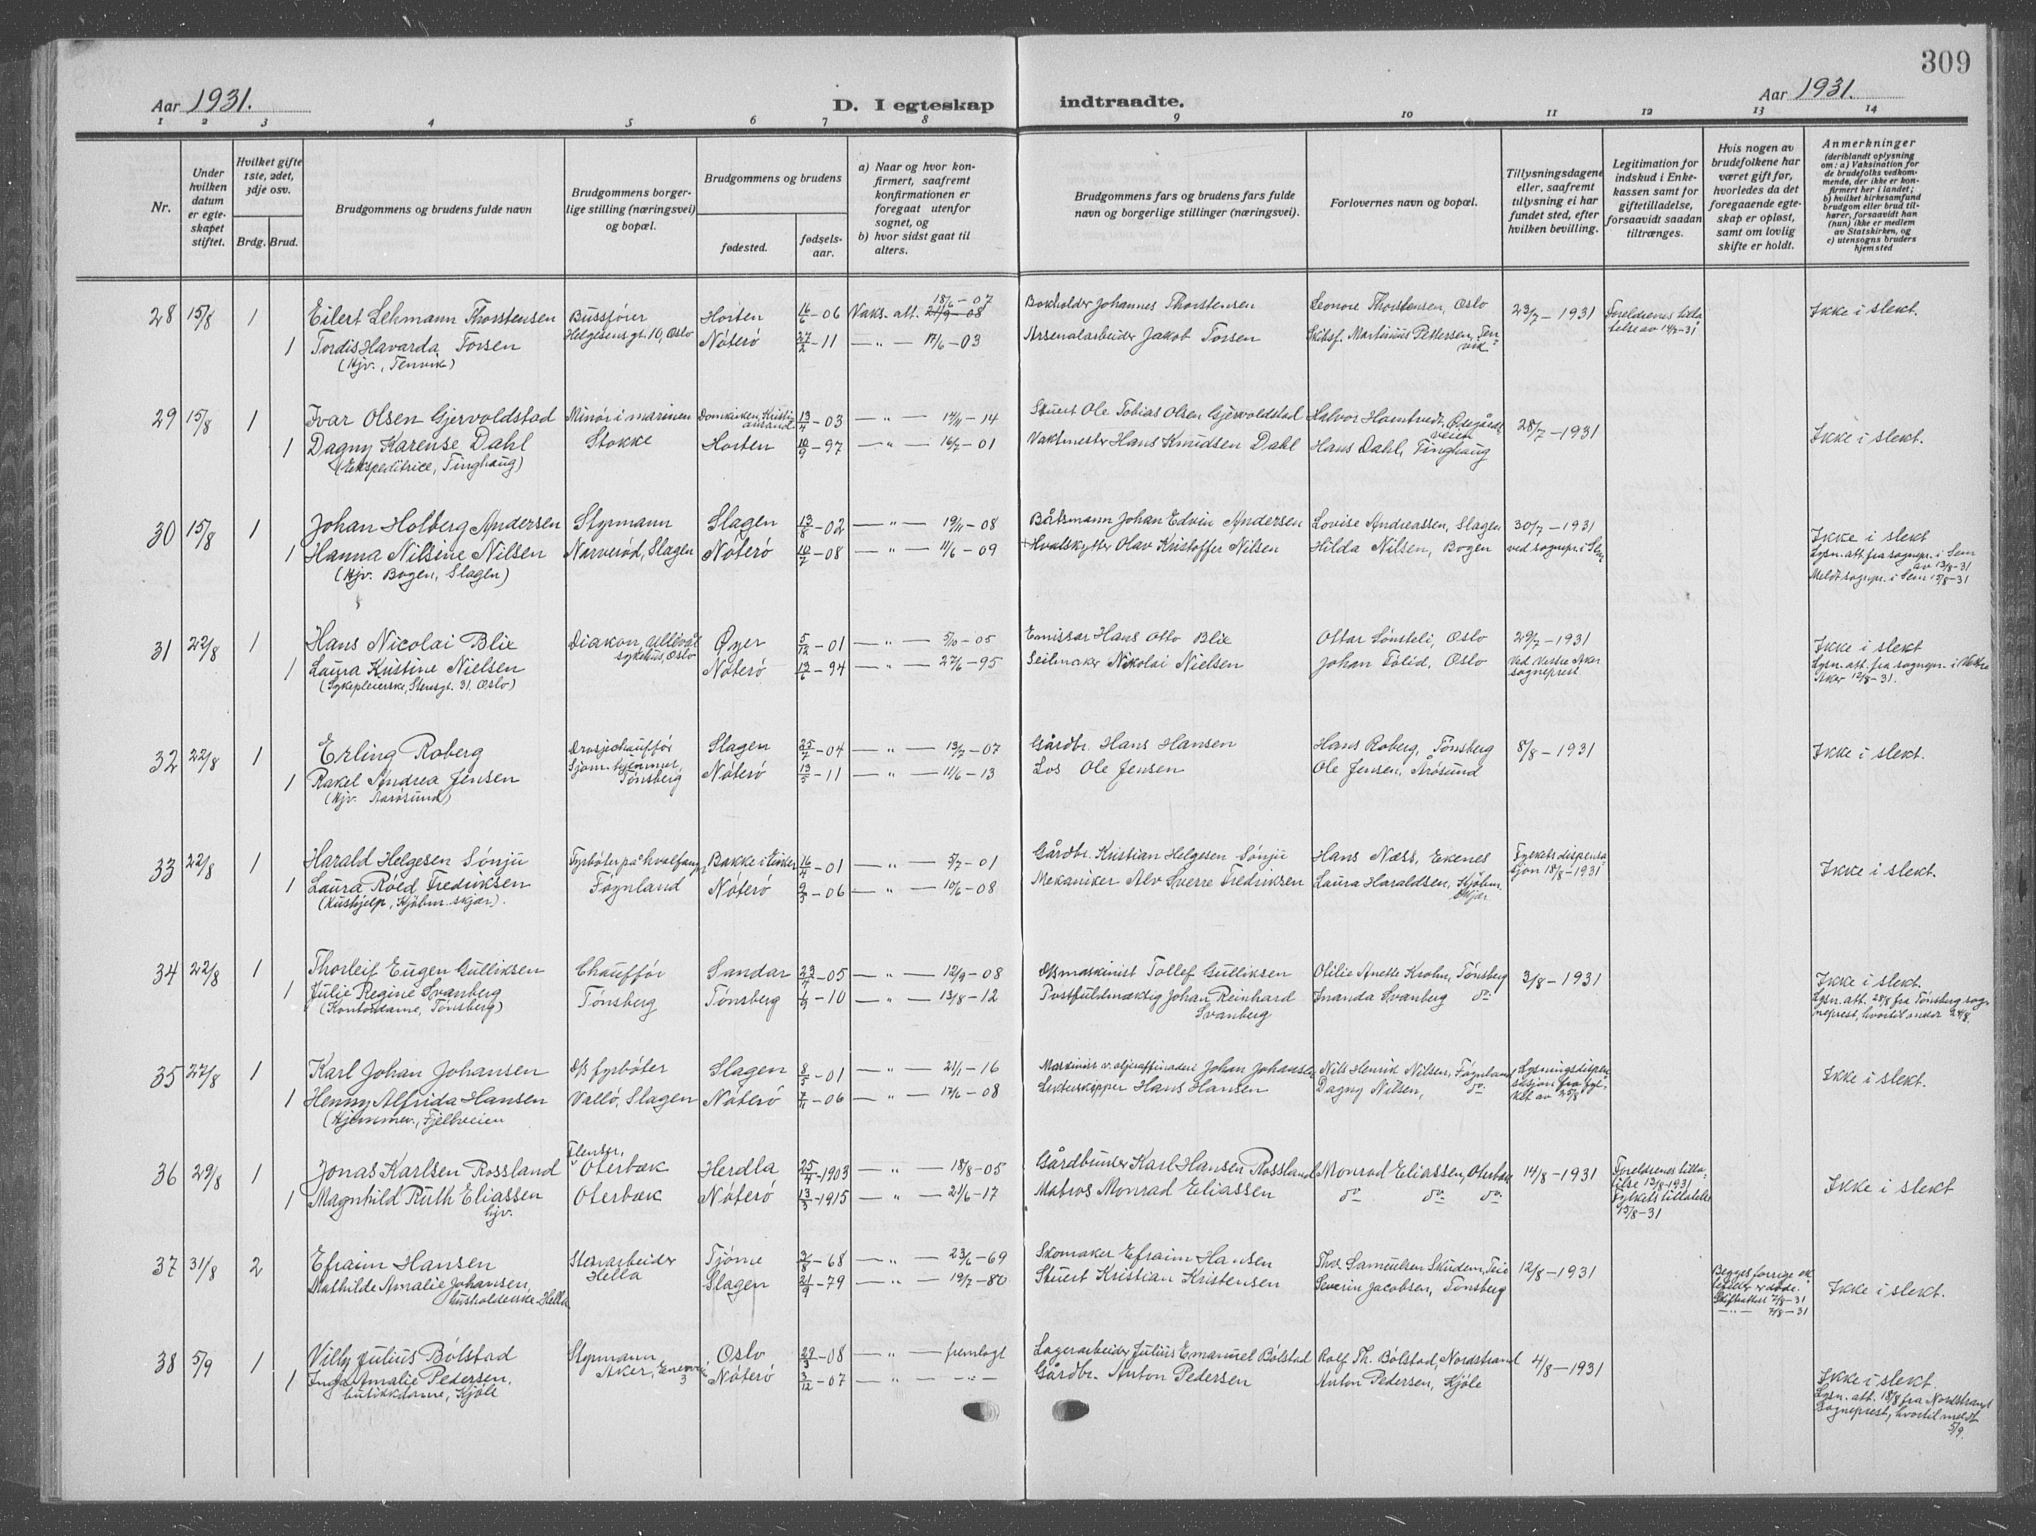 309
Aar 1931.
D. I egteskap indtraadte.
Aar 1931.
1 2 3 4 5 6 7 8 9 10 11 12 13 14
Nr.
Under hvilken datum er egteskapet stiftet.
Hvilket gifte 1ste, 2det, 3dje osv.
Brdg. Brud.
Brudgommens og brudens fulde navn
Brudgommens borgerlige stilling (næringsvei) og bopæl.
Brudgommens og brudens
fødested.
fødselsaar.
a) Naar og hvor konfirmert, saafremt konfirmationen er foregaat utenfor sognet, og
b) hvor sidst gaat til alters.
Brudgommens fars og brudens fars fulde navn og borgerlige stillinger (næringsvei).
Forlovernes navn og bopæl.
Tillysningsdagene eller, saafremt tillysning ei har fundet sted, efter hvilken bevilling.
Legitimation for indskud i Enkekassen samt for giftetilladelse, forsaavidt saadan tiltrænges.
Hvis nogen av brudefolkene har været gift før, hvorledes da det foregaaende egteskap er opløst, samt om lovlig skifte er holdt.
Anmerkninger
(deriblandt oplysning om: a) Vaksination for de brudefolks vedkommende, der ikke er konfirmert her i landet; b) hvilket kirkesamfund brudgom eller brud tilhører, forsaavidt han (hun) ikke er medlem av Statskirken, og c) utensogns bruders hjemsted
28 15/8 1 Eilert Lehmann Thorstensen Bussføier Horten 16/6-06 Vaks. att. 18/6-07 Bokholder Johannes Thorstensen Leonore Thorstensen, Oslo 23/7-1931 Foreldrenes tilla- Ikke i slekt.
1 Tordis Havarda Torsen Helgesens gt. 10, Oslo Nøterø 27/2-11 —"— 17/6-03 Arsenalarbeider Jakob Torsen Skibsf. Martinius Pettersen, Ten- telse av 14/7-31
(Hjv., Tenvik) vik
29 15/8 1 Ivar Olsen Gjervoldstad Minør i marinen Domkirken, Kristiansand 13/4-03 —"— 14/11-14 Stuert Ole Tobias Olsen Gjervoldstad Halvor Hamtvedt, Ødegårdsveien 28/7-1931
1 Dagny Karense Dahl Stokke Horten 10/9-97 —"— 16/7-01 Vaktmester Hans Knudsen Dahl Hans Dahl, Tinghaug Ikke i slekt.
(Ekspeditrice, Tinghaug)
30 15/8 1 Johan Holberg Andersen Styrmann Slagen 13/8-02 —"— 19/11-08 Båtsmann Johan Edvin Andersen Lovise Andreassen, Slagen 30/7-1931
1 Hanna Nilsine Nilsen Narverød, Slagen Nøterø 10/7-08 —"— 11/6-09 Hvalskytter Olav Kristoffer Nilsen Hilda Nilsen, Bogen ved sognepr. i Sem Ikke i slekt
(Hjv. Bogen, Slagen) Lysn. att. fra sognepr. i Sem av 13/8-31
Meldt sognepr. i Sem 15/8-31
31 22/8 1 Hans Nicolai Blix Diakon, Ullevål Øyer 5/12-01 —"— 5/10-05 Emissær Hans Otto Blix Ottar Lønsteli, Oslo 29/7-1931 Ikke i slekt
1 Laura Kristine Nielsen sykehus, Oslo Nøterø 13/6-94 —"— 27/6-95 Seilmaker Nikolai Nielsen Johan Tolid, Oslo Ved Vestre Aker sogneprest Lysn. att. fra sognepr. i Vestre Aker 12/8-31.
(Sykepleierske, Stensgt. 31. Oslo)
32 22/8 1 Erling Roberg Drosjechauffør Slagen 25/7-04 —"— 13/7-07 Gårdbr. Hans Hansen Hans Roberg, Tønsberg 8/8-1931 Ikke i slekt.
1 Rakel Andrea Jensen Sjøm. hjemmet, Tønsberg Nøterø 13/5-11 —"— 11/6-13 Los Ole Jensen Ole Jensen, Årøsund
(Hjv. Aarøsund)
33 22/8 1 Harald Helgesen Sønju Fyrbøter på hvalfangn Bakke i Eiker 16/4-01 —"— 5/7-01 Gårdbr. Kristian Helgesen Sønju Hans Næss, Ekenes Fylkets dispensa- Ikke i slekt.
1 Laura Røed Fredriksen Føynland Nøterø 9/3-06 —"— 10/6-08 Mekaniker Alv Sverre Fredriksen Laura Haraldsen, Kjøbm. skjær sjon 18/8-1931
(Hushjelp, Kjøbm. skjær).
34 22/8 1 Thorleif Eugen Gulliksen Chauffør Sandar 23/4-05 —"— 12/9-08 D/S maskinist Tollef Gulliksen Otilie Anette Krohn, Tønsberg 3/8-1931 Ikke i slekt.
1 Julie Regine Svanberg Tønsberg Tønsberg 1/3-10 —"— 13/8-12 Postfuldmægtig Johan Reinhard Svanberg Inanda Svanberg do Lysn. att. 28/8 fra Tønsberg sogneprest, hvortil sendt 24/8.
(Kontordame, Tønsberg)
35 27/8 1 Karl Johan Johansen D/S fyrbøter Slagen 8/5-01 —"— 21/1-16 Maskinist v. oljeraffineri Johan Johansen Nils Henrik Nilsen, Føynland Lysningsdispen- Ikke i slekt.
1 Henny Alfrida Hansen Valló, Slagen Nøterø 7/11-06 —"— 17/6-08 Lekterskipper Hans Hansen Dagny Nilsen, do sasjon fra fyl- ket av 25/8
(Hjemmev., Fjellveien
36 29/8 1 Jonas Karlsen Rossland Flenser, Oterbæk Herdla 25/4-1903 —"— 18/8-05 Gårdbruker Karl Hansen Rossland Monrad Eliassen, Oterbæk 14/8-1931 Foreldrenes tilla- telse 13/8-1931
1 Magnhild Ruth Eliassen Oterbæk Nøterø 13/3-1915 —"— 21/6-17 Matros Monrad Eliassen do do do Fylkets tillatelse 15/8-31 Ikke i slekt
hjv.
37 31/8 2 Efraim Hansen Stenarbeider Tjøme 3/8-68 —"— 23/6-69 Skomaker Efraim Hansen Thor Samuelsen Skudem, Teie 12/8-1931 Begges forrige ektefeller er døde.
Mathilde Amalie Johansen, Hella Slagen 21/9-79 —"— 19/7-80 Stuert Kristian Kristensen Severin Jacobsen, Tønsberg Skifteattest 7/8-31 Ikke i slekt.
husholderske Hella —"— 7/8-31
38 5/9 1 Villy Julius Bølstad Styrmann Oslo 29/3-08 —"— fremlagt Lagerarbeider Julius Emanuel Bølstad Rolf Th. Bølstad, Nordstrand 4/8-1931
1 Inga Amalie Pedersen, Aker, Nøterø 3/12-07 —"— —"— Gårdbr. Anton Pedersen Anton Pedersen, Kjøle Ikke i slekt.
butikkdame, Kjøle Lysn. att. 18/8 fra Nordstrand Sogneprest, hvortil meldt 5/9.